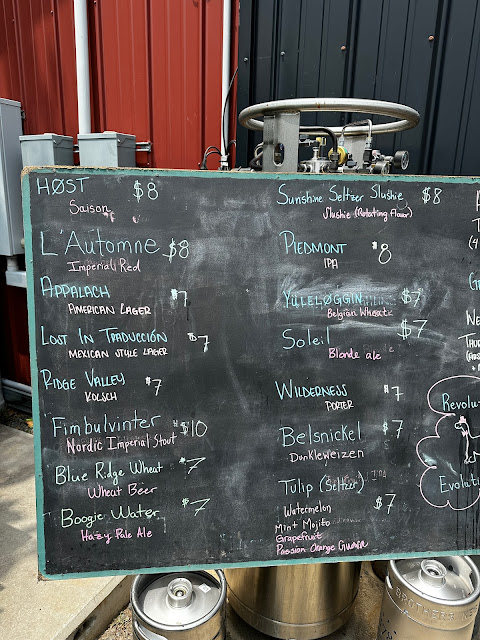 HØST $8
Saison
L'Automne $8
Imperial Red
Appalach $7
American Lager
Lost In Traducción $7
Mexican Style Lager
Ridge Valley $7
Kolsch
Fimbulvinter $10
Nordic Imperial Stout
Blue Ridge Wheat $7
Wheat Beer
Boogie Water $7
Hazy Pale Ale
Sunshine Seltzer Slushie $8
Slushie (Rotating Flavor)
Piedmont $8
IPA
Yuleløggin $7
Belgian Wheat
Soleil $7
Blonde ale
Wilderness $7
Porter
Belsnickel $7
Dunkleweizen
Tulip (Seltzer) $7
Watermelon
Mint Mojito
Grapefruit
Passion Orange Guava
Revolu
Evolut